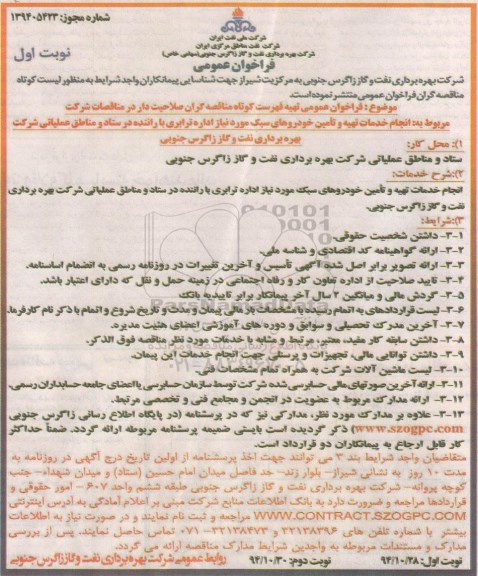 شماره مجوز: ۱۳۹۴۰۵۴۲۳
شرکت ملی نفت ایران
شرکت نفت مناطق مرکزی ایران
شرکت بهره برداری نفت و گاز زاگرس جنوبی (سهامی خاص)
نوبت اول
فراخوان عمومی
شرکت بهره برداری نفت و گاز زاگرس جنوبی به مرکزیت شیراز جهت شناسایی پیمانکاران واجد شرایط به منظور لیست کوتاه
مناقصه گران فراخوان عمومی منتشر نموده است.
موضوع : فراخوان عمومی تهیه فهرست کوتاه مناقصه گران صلاحیت دار در مناقصات شرکت
مربوط به: انجام خدمات تهیه و تأمین خودروهای سبک مورد نیاز اداره ترابری با راننده در ستاد و مناطق عملیاتی شرکت
بهره برداری نفت و گاز زاگرس جنوبی
۱): محل کار:
ستاد و مناطق عملیاتی شرکت بهره برداری نفت و گاز زاگرس جنوبی
۲):شرح خدمات:
انجام خدمات تهیه و تأمین خودروهای سبک مورد نیاز اداره ترابری با راننده در ستاد و مناطق عملیاتی شرکت بهره برداری
نفت و گاز زاگرس جنوبی.
۳):شرایط:
۳-۱- داشتن شخصیت حقوقی.
۳-۲- ارائه گواهینامه کد اقتصادی و شناسه ملی.
۳-۳- ارائه تصویر برابر اصل شده آگهی تأسیس و آخرین تغییرات در روزنامه رسمی به انضمام اساسنامه.
۳-۴- تایید صلاحیت از اداره تعاون کار و رفاه اجتماعی در زمینه حمل و نقل که دارای اعتبار باشد.
۳-۵- گردش مالی و میانگین ۲ سال آخر پیمانکار برابر تاییدیه بانک
۳-۶- لیست قراردادهای به اتمام رسیده با مشخصات بار مالی پیمان و مدت و تاریخ شروع و اتمام با ذکر نام کارفرما.
۳-۷- آخرین مدرک تحصیلی و سوابق و دوره های آموزشی اعضای هئیت مدیره.
۳-۸- داشتن سابقه کار مفید، معتبر، مرتبط و مشابه با خدمات مورد نظر مناقصه فوق الذکر.
۳-۹- داشتن توانایی مالی، تجهیزات و پرسنلی جهت انجام خدمات این پیمان.
۳-۱۰- لیست ماشین آلات شرکت به همراه تمام مشخصات فنی.
۳-۱۱- ارائه آخرین صورتهای مالی حسابرسی شده شرکت توسط سازمان حسابرسی یا اعضای جامعه حسابداران رسمی.
۳-۱۲- ارائه مدارک مربوط به عضویت در انجمن و مجامع فنی و تخصصی مرتبط.
۳-۱۳- علاوه بر مدارک مورد نظر، مدارکی نیز که در پرسشنامه (در پایگاه اطلاع رسانی زاگرس جنوبی
www.szogpc.com) ذکر گردیده است بایستی ضمیمه پرسشنامه مربوطه ارائه گردد. ضمناً حداکثر
کار قابل ارجاع به پیمانکاران دو قرارداد است.
متقاضیان واجد شرایط بند ۳ می توانند جهت اخذ پرسشنامه از اولین تاریخ درج آگهی در روزنامه به
مدت ۱۰ روز به نشانی شیراز- بلوار زند- حد فاصل میدان امام حسین (ستاد) و میدان شهداء- جنب
کوچه پروانه- شرکت بهره برداری نفت و گاز زاگرس جنوبی طبقه ششم واحد ۶۰۷ - امور حقوقی و
قراردادها مراجعه و ضرورت دارد به بانک اطلاعات منابع شرکت مبنی بر اعلام آمادگی به آدرس اینترنتی
WWW.CONTRACT.SZOGPC.COM مراجعه و ثبت نام نمایند و در صورت نیاز به اطلاعات
بیشتر با شماره تلفن های ۳۲۱۳۸۳۹۶ و ۳۲۱۳۸۴۷۳-۰۷۱ تماس حاصل نمایند. پس از بررسی
مدارک و مستندات مربوطه به واجدین شرایط مدارک مناقصه ارائه می گردد.
نوبت اول: ۹۴/۱۰/۲۸ نوبت دوم: ۹۴/۱۰/۳۰ روابط عمومی شرکت بهره برداری نفت و گاز زاگرس جنوبی